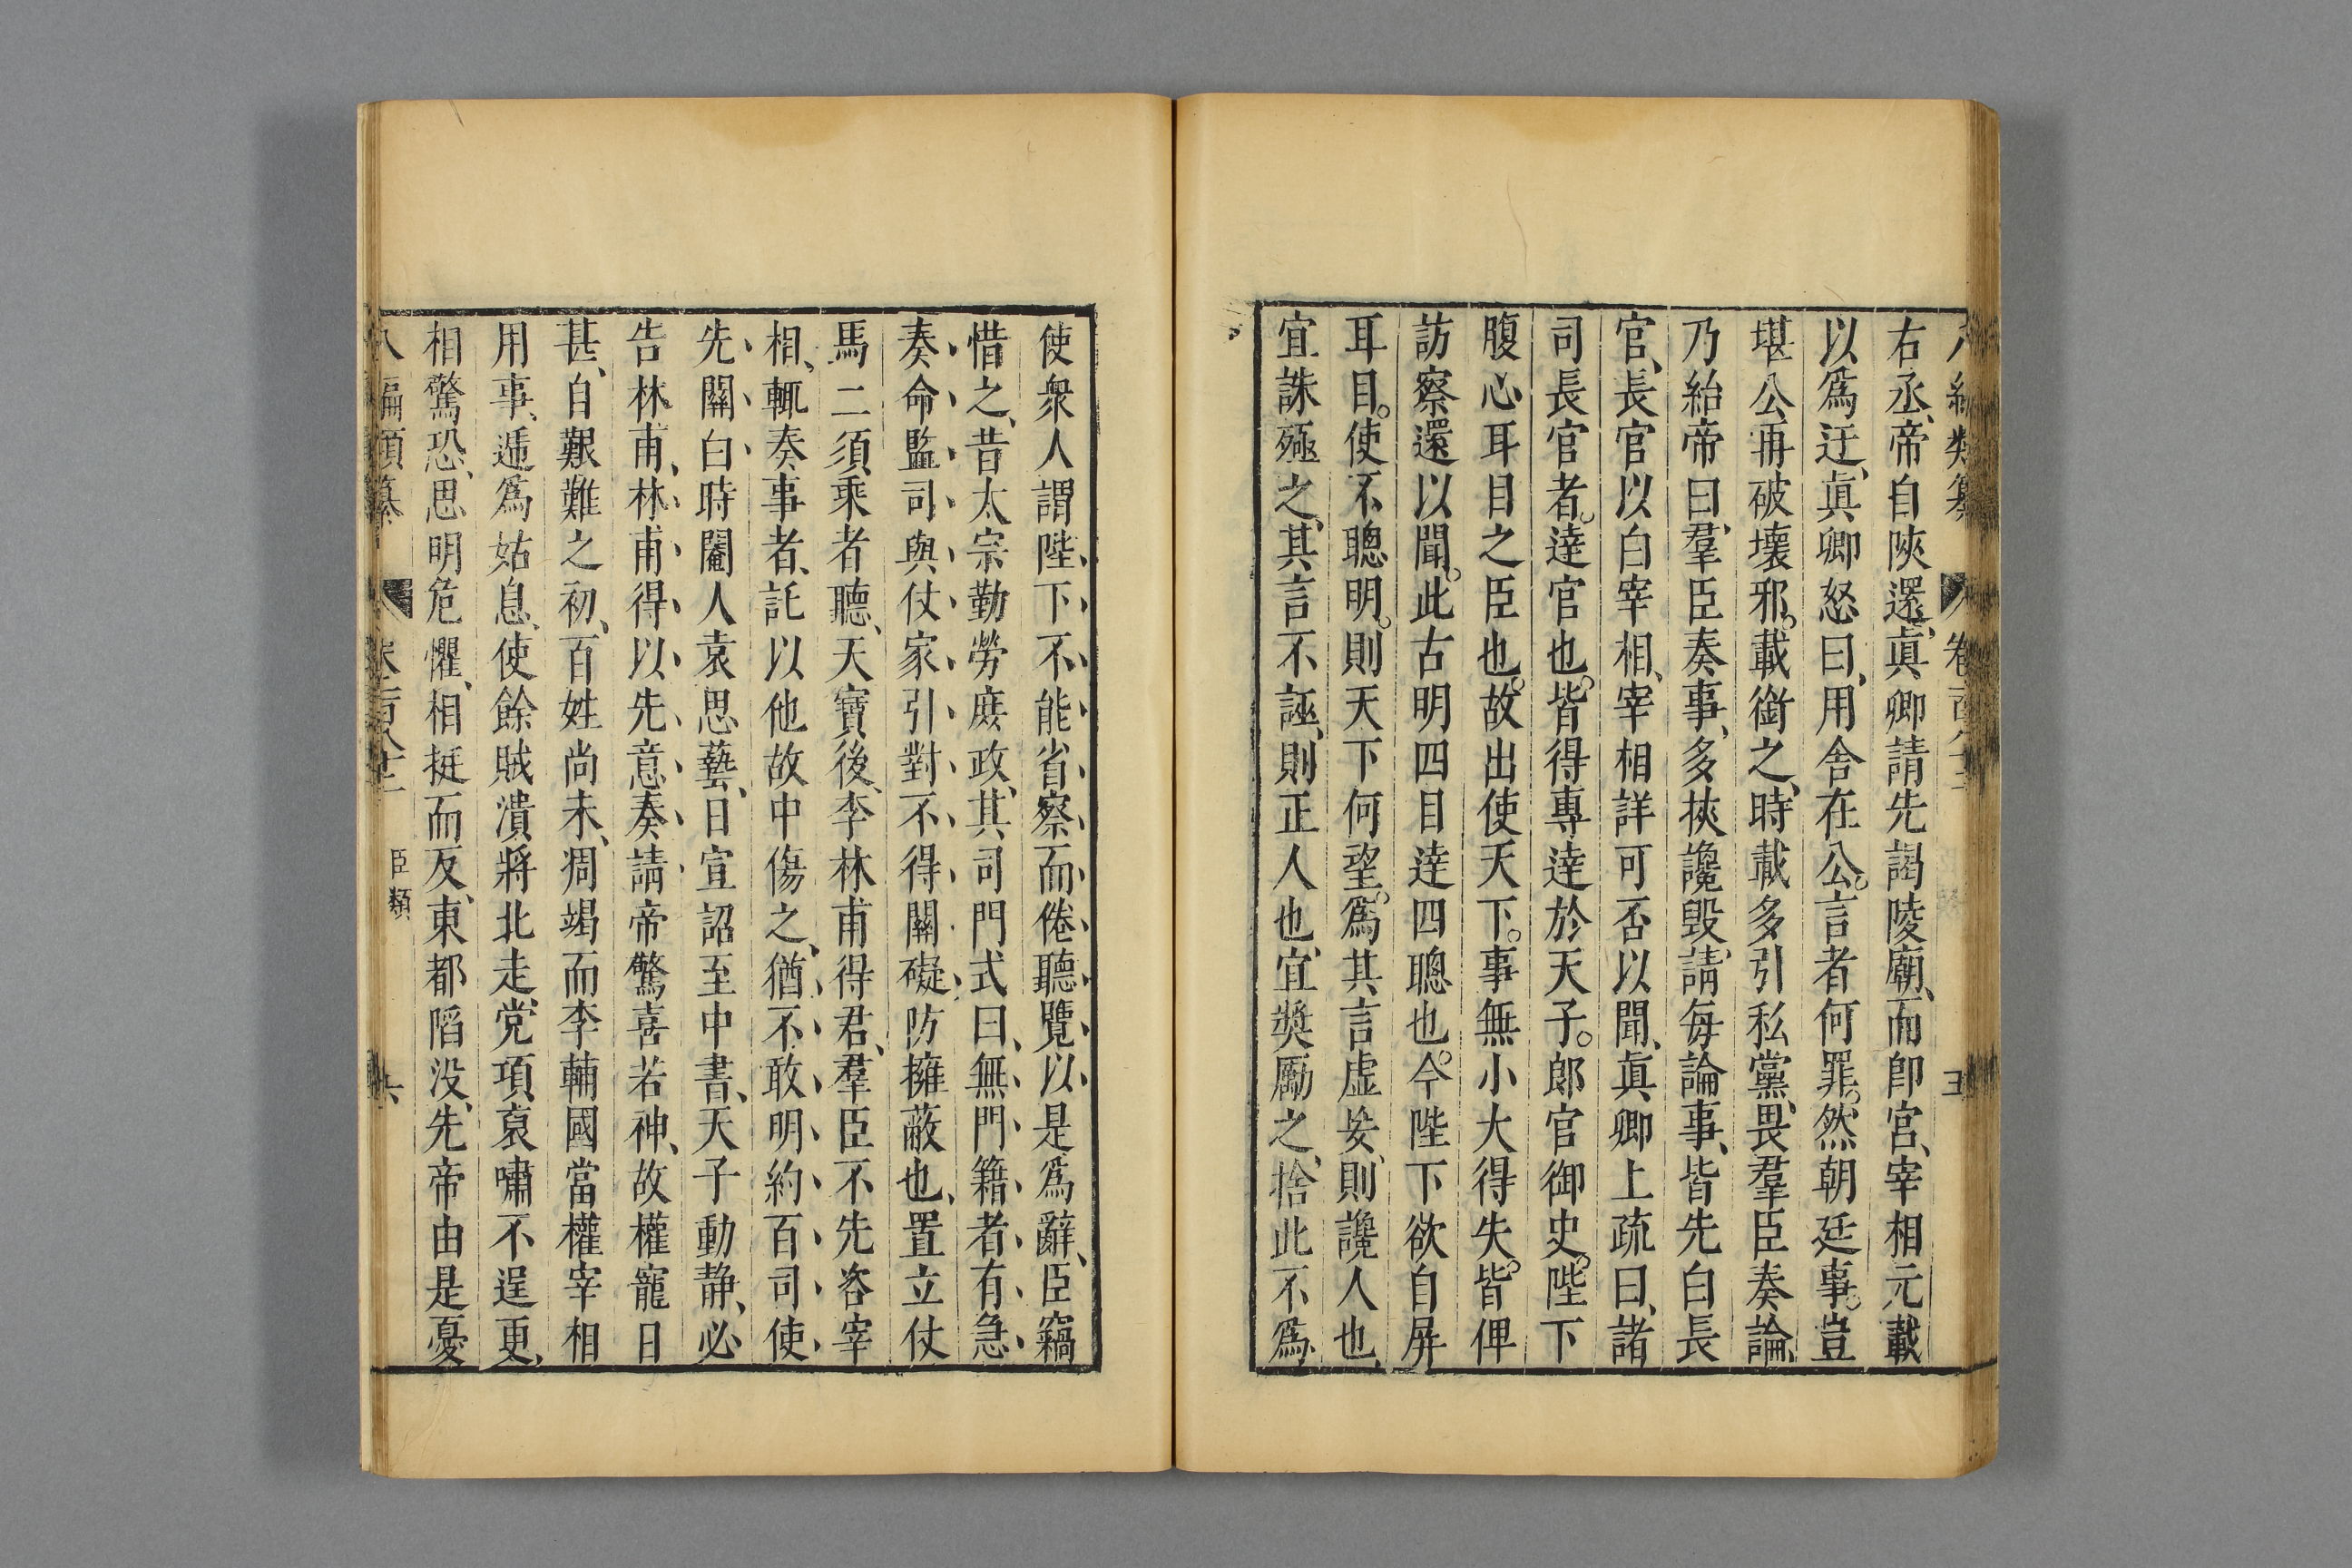 右丞、帝自陝還、眞卿請先謁陵廟、而卽宮、宰相元載
以爲迂、眞卿怒曰、用舍在公。言者何罪。然朝廷事。豈
堪公再破壞邪。載銜之、時載多引私黨、畏羣臣奏論、
乃紿帝曰、羣臣奏事、多挾讒毀、請每論事、皆先白長
官、長官以白宰相、宰相詳可否以聞、眞卿上疏曰、諸
司長官者。達官也。皆得專達於天子。郎官御史。陛下
腹心耳目之臣也。故出使天下。事無小大得失。皆俾
訪察還以聞。此古明四目達四聰也。今陛下欲自屏
耳目。使不聰明。則天下何望。爲其言虛妄、則讒人也、
宜誅殛之、其言不誣、則正人也、宜奬勵之、捨此不爲、
使衆人謂陛下不能省察而倦聽覽以是爲辭、臣竊
惜之、昔太宗勤勞庶政、其司門式曰、無門籍者有急
奏命監司與仗家引對不得關礙防擁蔽也、置立仗
馬二須乘者聽、天寶後、李林甫得君、羣臣不先咨宰
相、輒奏事者、託以他故中傷之、猶不敢明約百司使
先關白時閹人袁思藝、日宣詔至中書、天子動静、必
告林甫、林甫得以先意奏請帝驚喜若神、故權寵日
甚、自艱難之初、百姓尚未、凋竭而李輔國當權宰相
用事、遞爲姑息、使餘賊潰將北走党項裒嘯不逞更、
相驚恐、思明危懼、相挺而反、東都䧟没、先帝由是憂
八編類纂 卷二百八十二 臣類 六